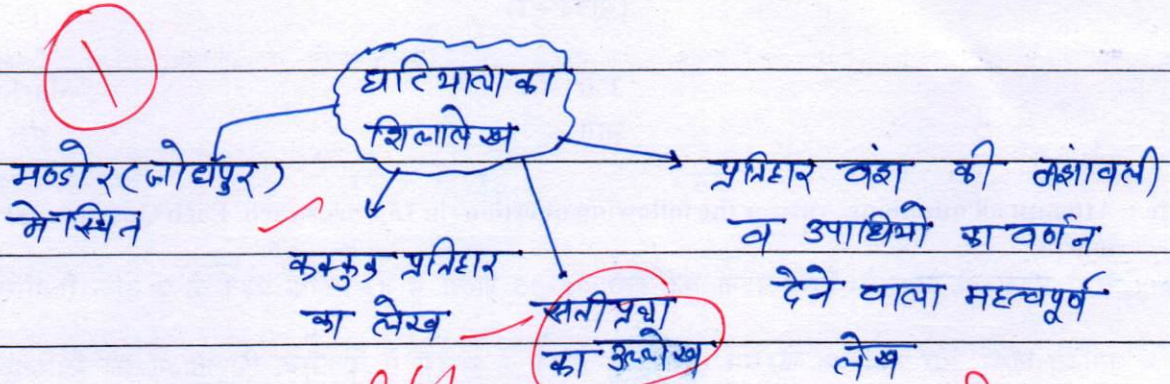 1
घटियाला का
शिलालेख
मण्डोर (जोधपुर)
में स्थित
कक्कुक प्रतिहार
का लेख
सती प्रथा
का उल्लेख
प्रतिहार वंश की वंशावली
व उपाधियों का वर्णन
देने वाला महत्वपूर्ण
लेख